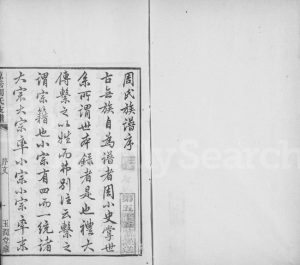 周氏族譜序
古無族自為譜者周小史掌世
系所謂世本錄者是也禮大
傳繫之以姓而弗別注云繫之
謂宗籍也小宗有四而一統諸
大宗大宗率小宗小宗率羣
序文